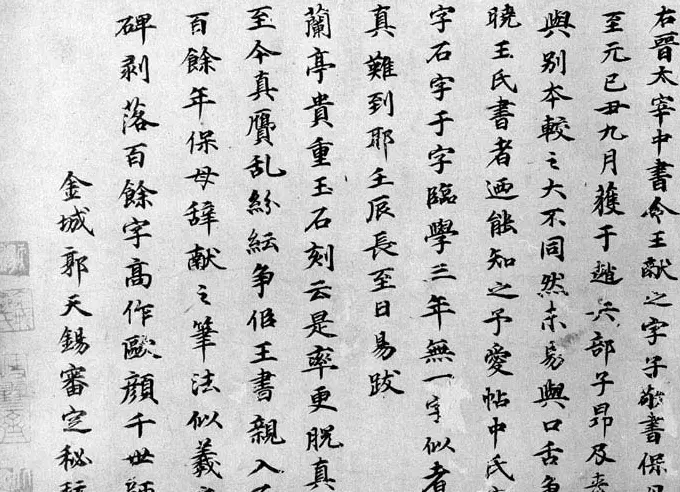 右晉太宰中書令王獻之字子敬書保
至元己丑九月獲于趙兵部子昂及
與別本較之大不同然未易與口舌爭
曉王氏書者迺能知之予愛帖中氏
字石字于字臨學三年無一字似者
真難到耶壬辰長至日易跋
蘭亭貴重玉石刻云是率更脫真
至今真贋乱紛紜爭伹王書親入
百餘年保母辞献之筆法似羲
碑剥落百餘字高作歐顔千世
金城郭天錫審定秘